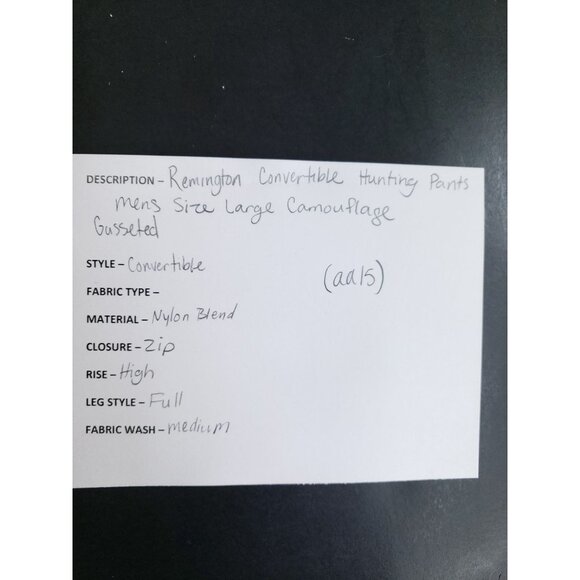 DESCRIPTION – Remington Convertible Hunting Pants
Mens Size Large Camouflage
Gusseted
STYLE – Convertible
(aa15)
FABRIC TYPE –
MATERIAL – Nylon Blend
CLOSURE – Zip
RISE – High
LEG STYLE – Full
FABRIC WASH – medium